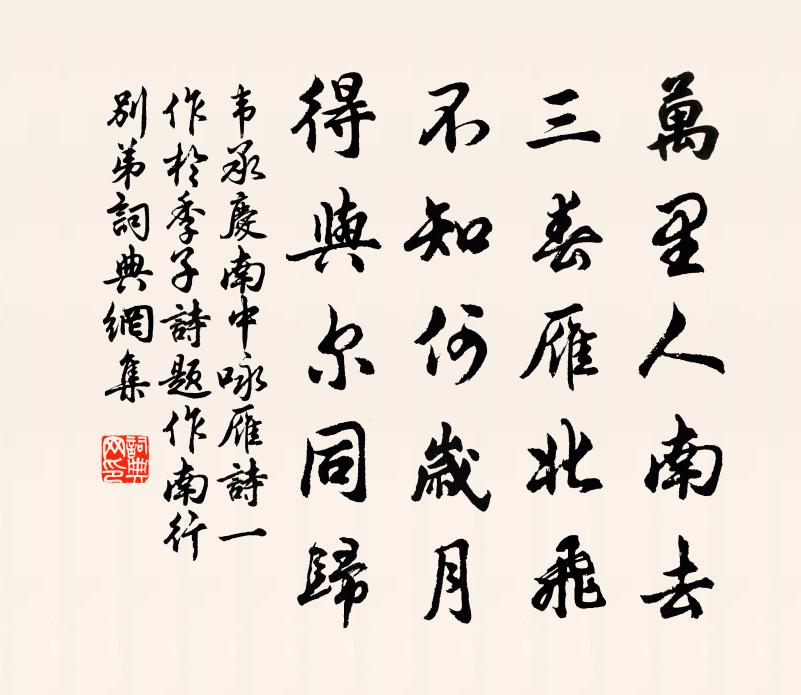 萬里人南去
三春雁北飛
不知何歲月
得與尔同歸
韦承慶南中咏雁詩一
作於季子詩題作南行
别弟詞典網集
詞典网印